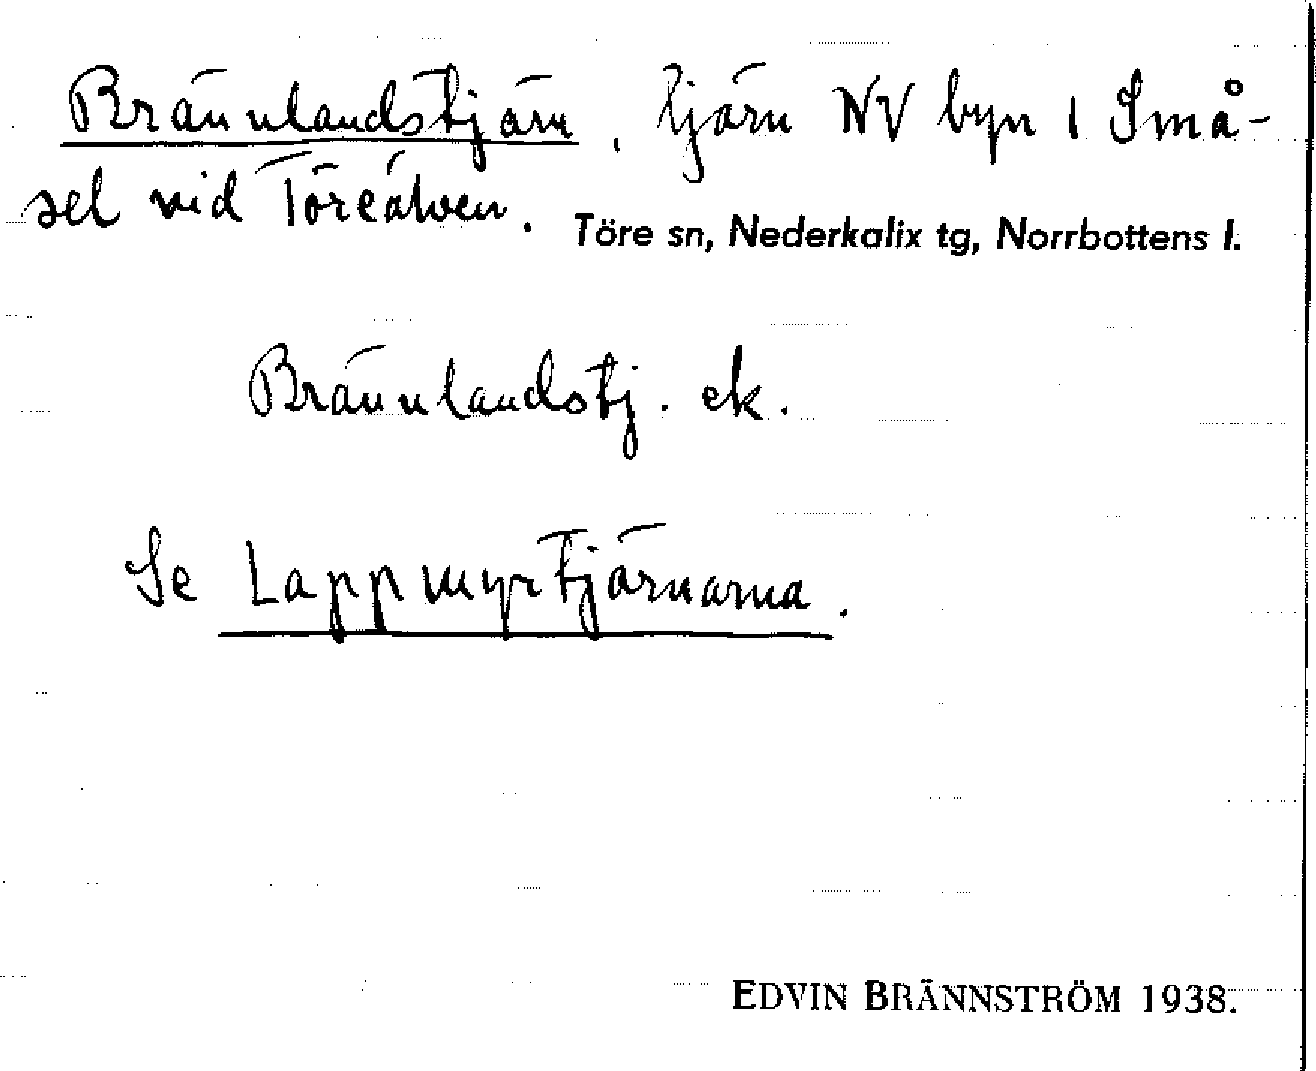 Brännlandstjärn, tjärn NV byn 1 Små-
sel vid Töreälven.
Töre sn, Nederkalix tg, Norrbottens l.
Brännlandstj. ek.
Se Lappmyrtjärnarna.
EDVIN BRÄNNSTRÖM 1938.